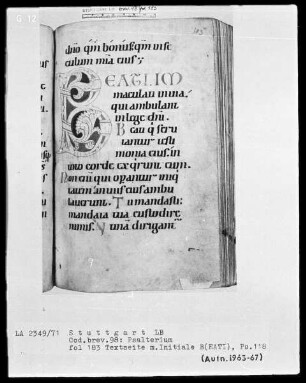 dn̄o qm̄ bonus: qm̄ inse
culum mia eius;
BEATI IM
maculati inuia:
qui ambulant
inlege dn̄i.
Beati q̇ scru
tantur testi
monia eius: in
toto corde exq̇runt eum.
Non enī qui operantur iniq̇
tatem: in uiis eius ambu
lauerunt. Tu mandasti:
mandata tua custodire
nimis. Utinā dirigant̄
LA 2349/71 Stuttgart LB
Cod.brev.98: Psalterium
fol 183 Textseite m.Initiale B(EATI), Ps.118
(Aufn.1963-67)